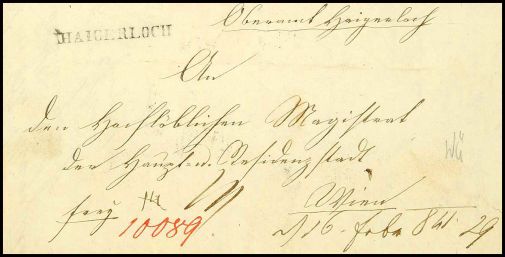 Oberamt Haigerloch
HAIGERLOCH
An
den Hochlöblichen Magistrat
der Haupt u. Residenzstadt
Wien
frey
10089
16. Febr 841. 29